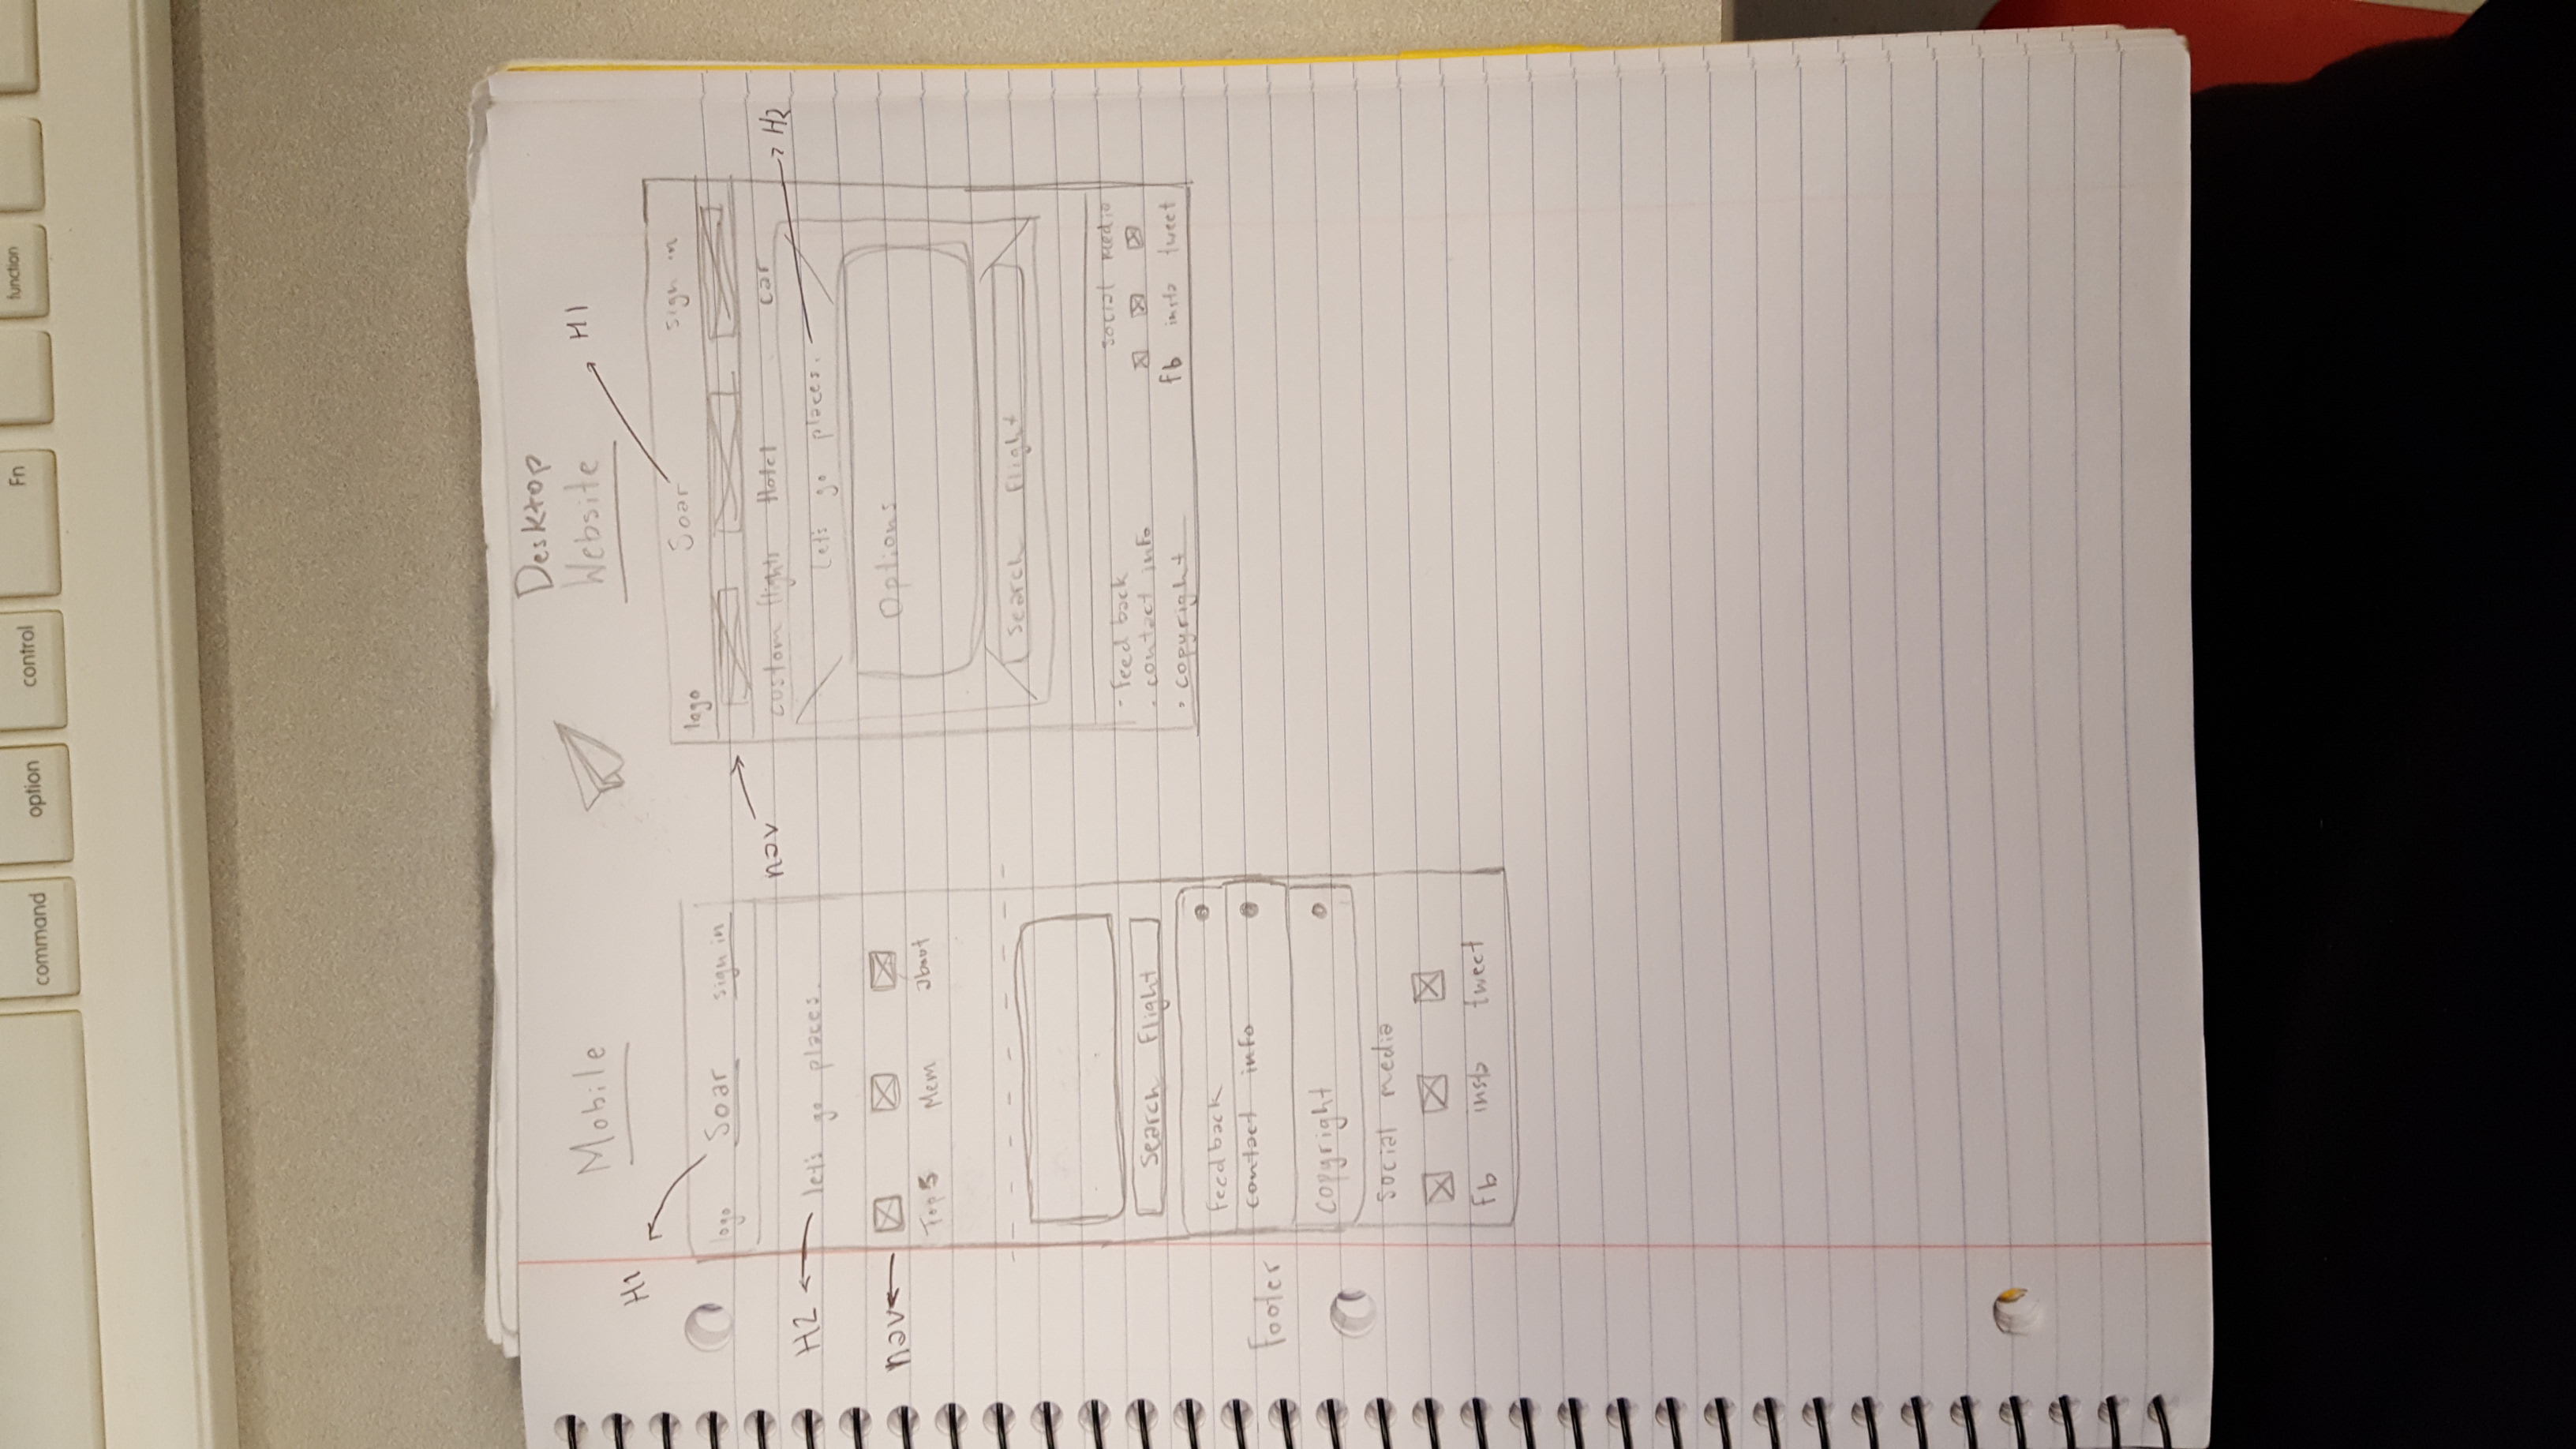 command option control Fn function
Mobile
Desktop
Website
H1
H1
logo Soar sign in
H2 let's go places.
nav
Top 5 Mem about
Search Flight
feedback
contact info
Footer
copyright
social media
fb insta tweet
logo Soar sign in
nav
custom flights Hotel car
Let's go places. H2
Options
Search Flight
- Feed back
• contact info
• copyright
social media
fb insta tweet